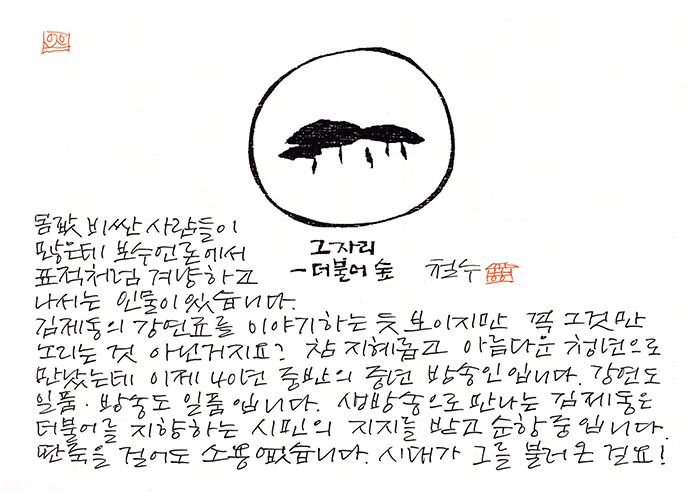 그 자리
-더불어 숲
철수
몸값 비싼 사람들이
많은데 보수언론에서
표적처럼 겨냥하고
나서는 인물이 있습니다.
김제동의 강연료를 이야기하는 듯 보이지만 꼭 그것만
노리는 것 아닌거지요? 참 지혜롭고 아름다운 청년으로
만났는데 이제 40년 중반의 중년 방송인입니다. 강연도
일품·방송도 일품입니다. 생방송으로 만나는 김제동은
더불어를 지향하는 시민의 지지를 받고 순항중입니다.
딴죽을 걸어도 소용없습니다. 시대가 그를 불러온 걸요!